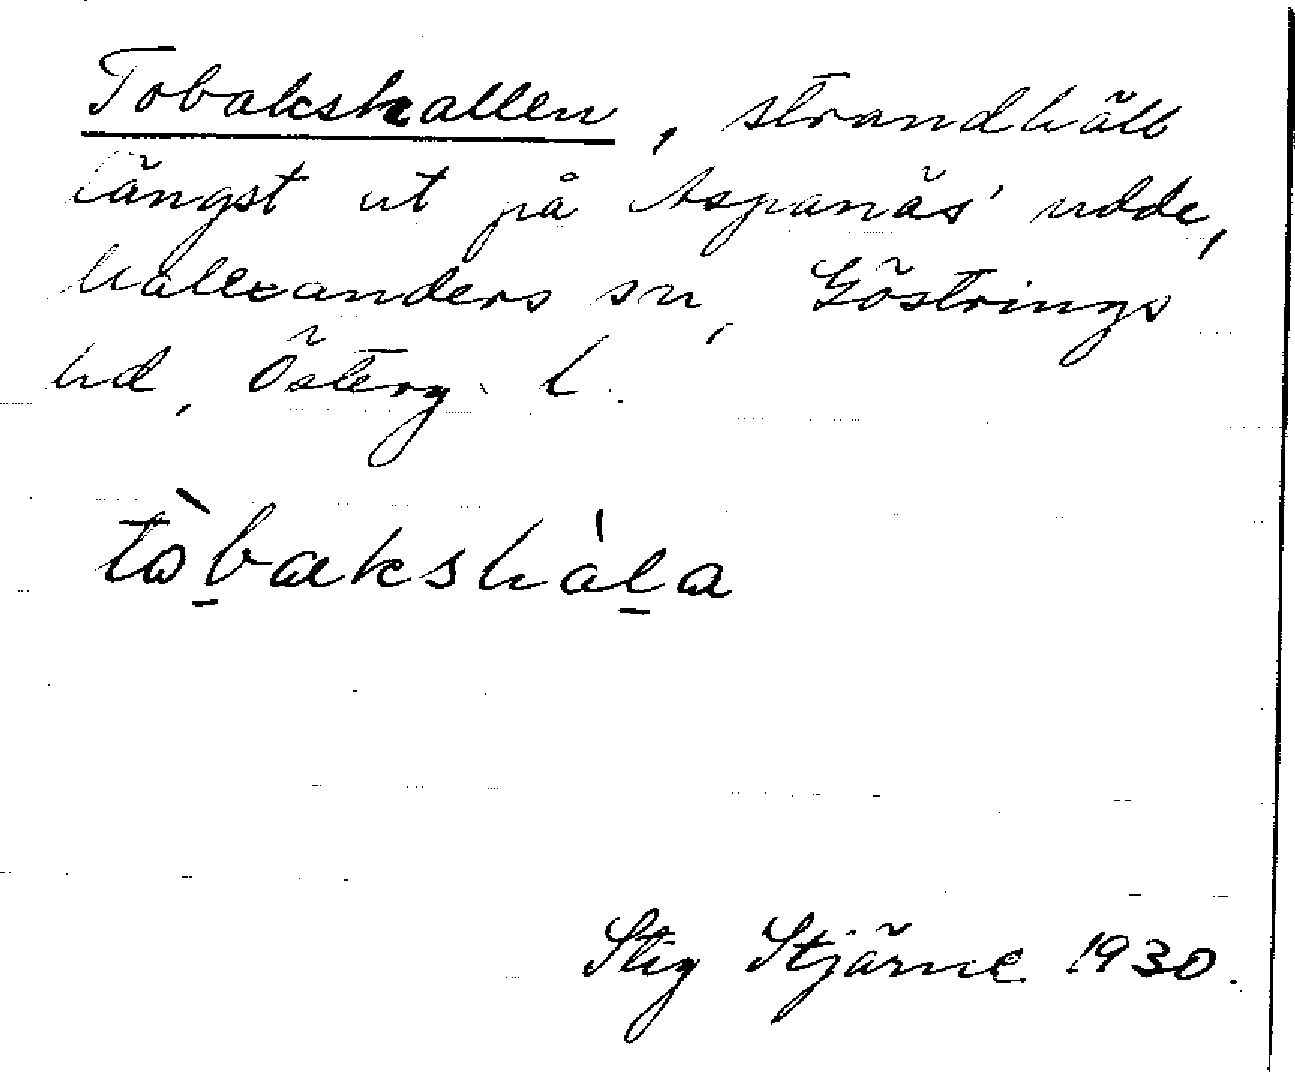 Tobakshallen, strandhäll
längst ut på Aspanäs' udde,
Malexanders sn, Göstrings
hd, Österg. l.
tòbakshàla
Stig Stjärne 1930.